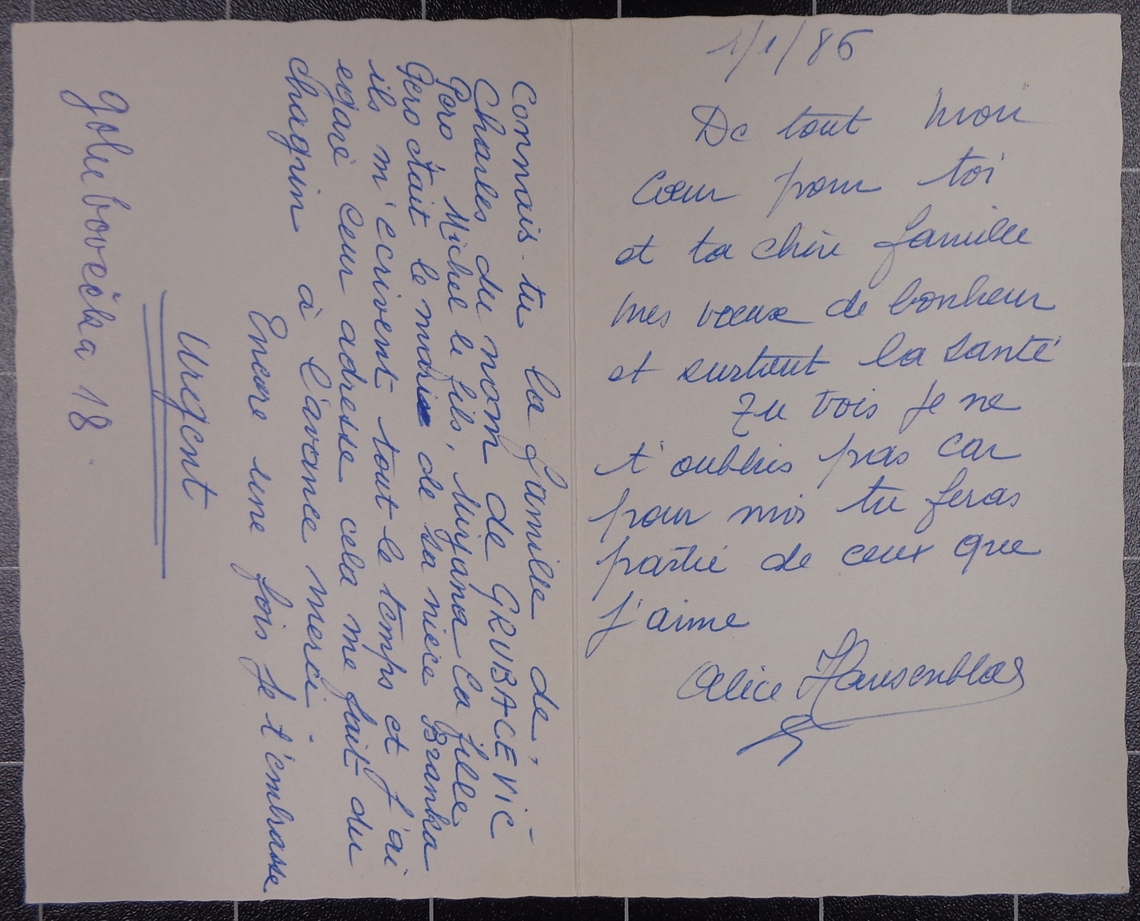 1/1/86
De tout mon
Cœur pour toi
et ta chère famille
mes vœux de bonheur
et surtout la santé
Tu vois je ne
t'oublis pas car
pour moi tu feras
partie de ceux que
j'aime
Alice Hausenblas
Connais-tu la famille de,
Charles du nom de GRUBACEVIC
Pero Michel le fils, Miryana la fille
Pero était le mari de sa niece Branka
ils m'écrivent tout le temps et j'ai
egaré leur adresse cela me fait du
chagrin à l'avance merci.
Encore une fois je t'embrasse
Urgent
Golubovečka 18.